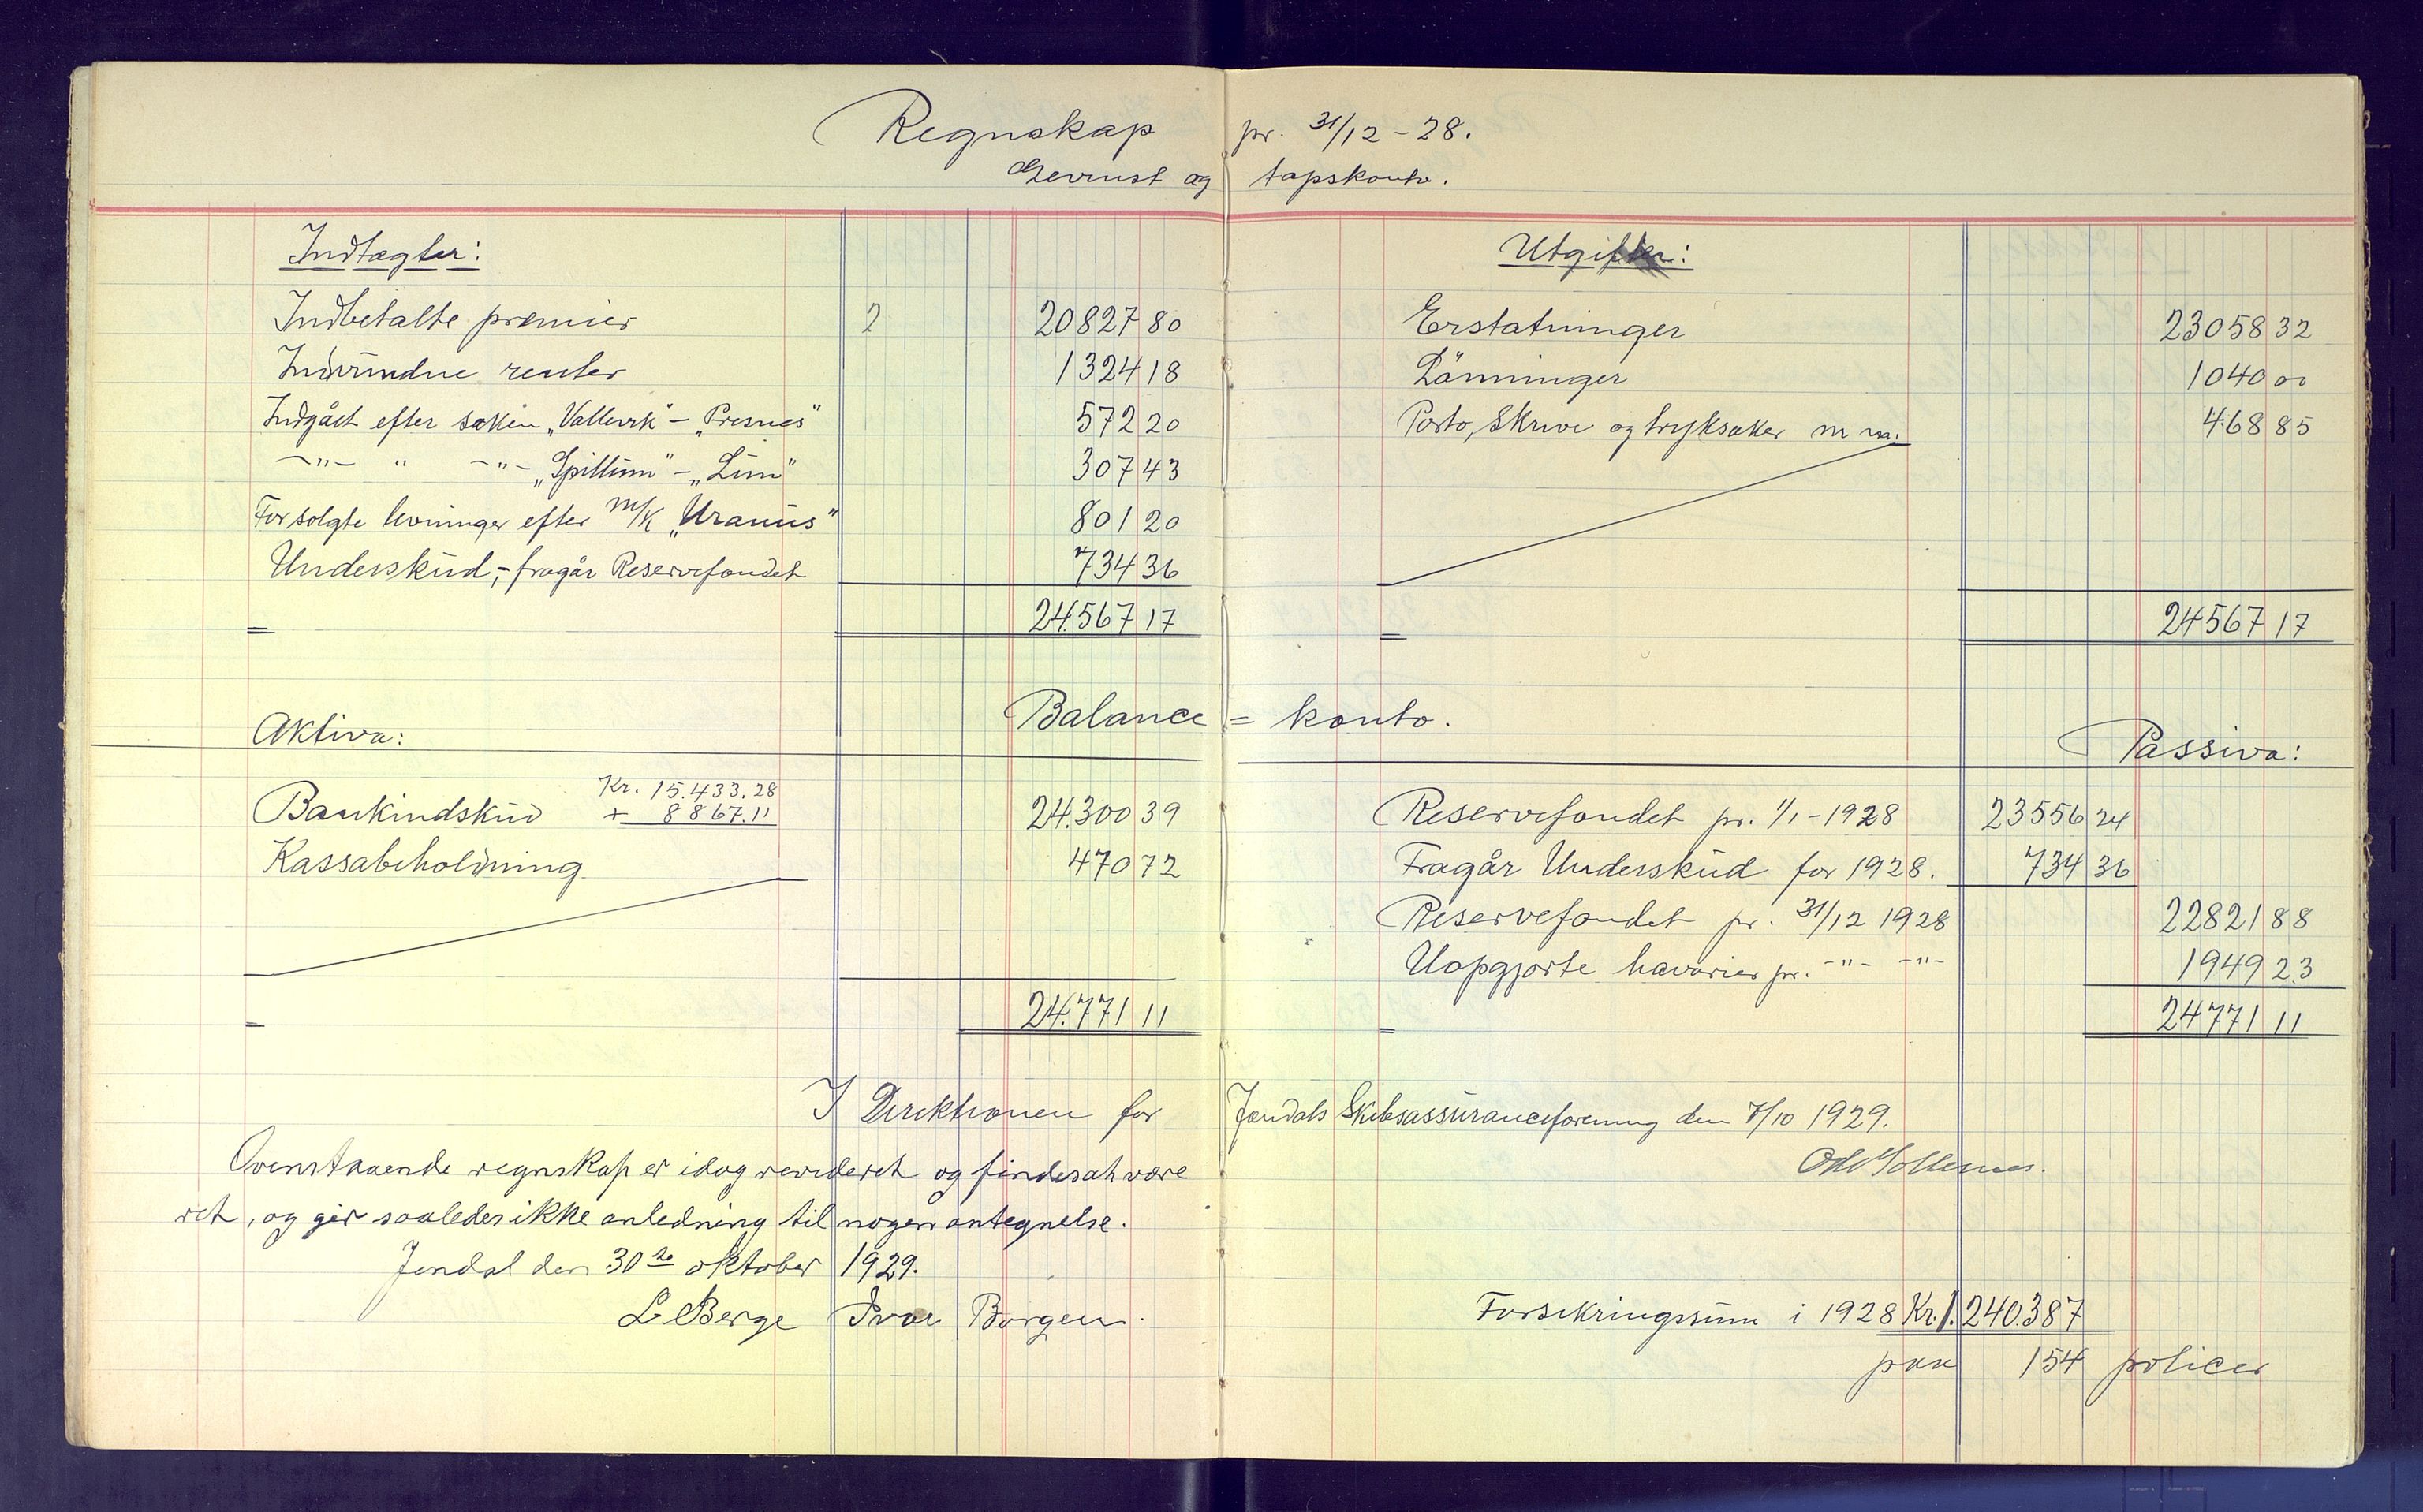 Regnskap pr. 31/12 - 28.
Gevinst og tapskonto.
Indtægter:
Indbetalte premier 2 20827 80
Indvundne renter 1324 18
Indgået efter saken „Vallevik" - „Presnes" 572 20
-"- " -"- „Spillum" - „Lum" 307 43
For solgte levninger efter M/K „Uranus" 801 20
Underskud, - fragår Reservefondet 734 36
= 24.567 17
Utgifter:
Erstatninger 23058 32
Lönninger 1040 00
Porto, Skrive og tryksaker m m. 468 85
= 24567 17
Balance = konto.
Aktiva:
Kr. 15.433.28
Bankindskud + 8867.11 24.300 39
Kassabeholdning 470 72
= 24.771 11
Passiva:
Reservefondet pr. 1/1 - 1928 23556 24
Fragår Underskud for 1928. 734 36
Reservefondet pr. 31/12 1928 22821 88
Uopgjorte havarier pr. -"- -"- 1949 23
= 24771 11
I Direktionen for Jondals Skibsassuranceforening den 7/10 1929.
Ovenstaaende regnskap er idag revideret og findes at være
ret, og gir saaledes ikke anledning til nogen antegnelse.
Jondal den 30te oktober 1929.
L Berge Ivar Borgen.
Forsikringssum i 1928 Kr. 1.240.387
paa 154 policer